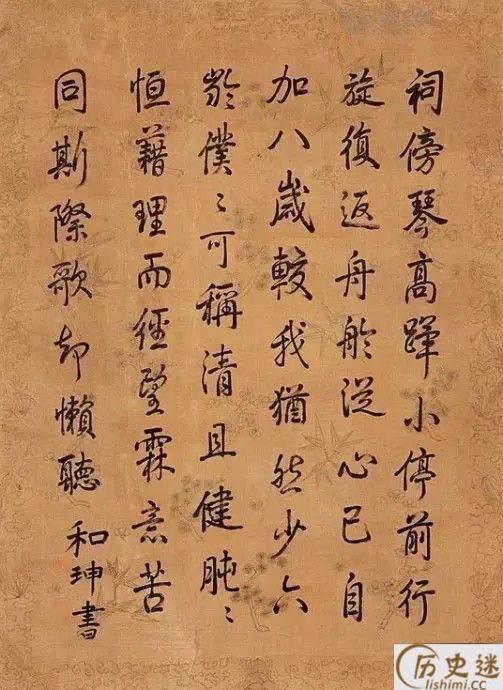 祠傍琴高蹕小停前行
旋復返舟舲從心已自
加八歲較我猶然少六
齡僕〻可稱清且健肫〻
恒藉理而經望霖意苦
同斯際歌却懶聽 和珅書
历史迷
lishimi.cc